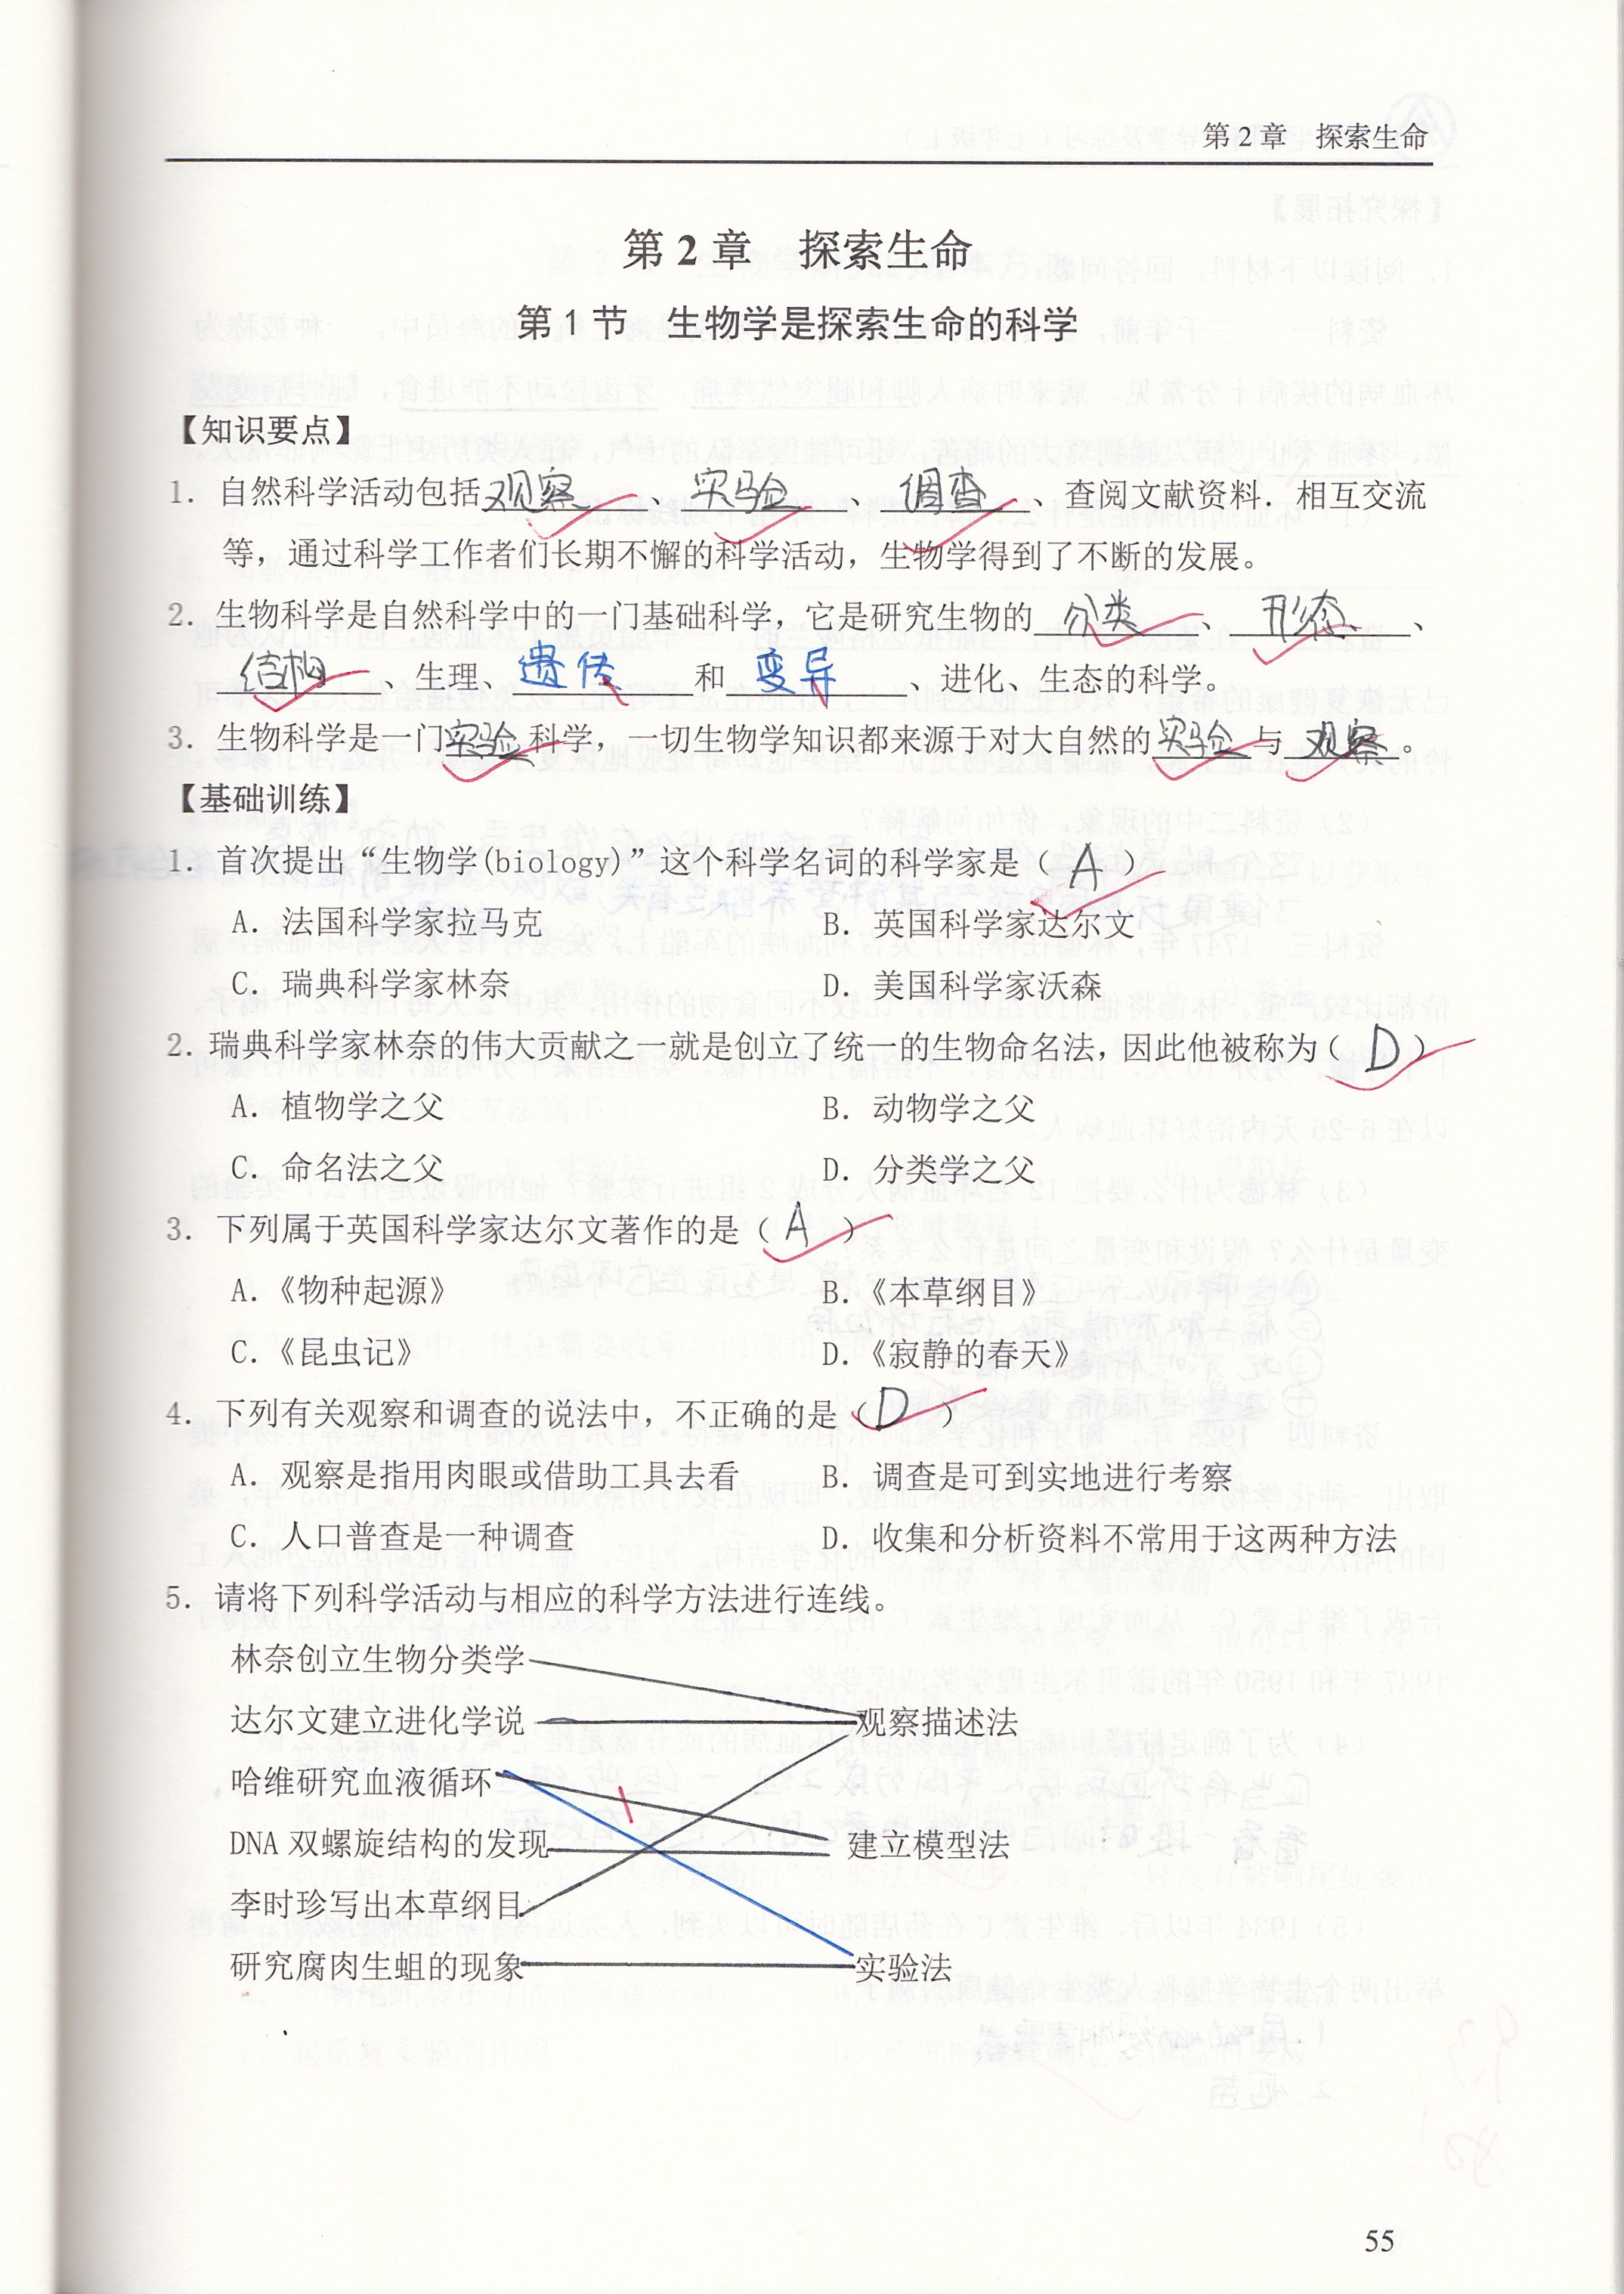 第 2 章 探索生命
第 2 章 探索生命
第 1 节 生物学是探索生命的科学
【知识要点】
1. 自然科学活动包括观察、实验、调查、查阅文献资料．相互交流
等，通过科学工作者们长期不懈的科学活动，生物学得到了不断的发展。
2. 生物科学是自然科学中的一门基础科学，它是研究生物的 分类、形态、
结构、生理、遗传 和 变异、进化、生态的科学。
3. 生物科学是一门实验科学，一切生物学知识都来源于对大自然的实验与 观察。
【基础训练】
1. 首次提出“生物学(biology)”这个科学名词的科学家是（ A ）
A. 法国科学家拉马克 B. 英国科学家达尔文
C. 瑞典科学家林奈 D. 美国科学家沃森
2. 瑞典科学家林奈的伟大贡献之一就是创立了统一的生物命名法，因此他被称为（ D ）
A. 植物学之父 B. 动物学之父
C. 命名法之父 D. 分类学之父
3. 下列属于英国科学家达尔文著作的是（ A ）
A.《物种起源》 B.《本草纲目》
C.《昆虫记》 D.《寂静的春天》
4. 下列有关观察和调查的说法中，不正确的是（ D ）
A. 观察是指用肉眼或借助工具去看 B. 调查是可到实地进行考察
C. 人口普查是一种调查 D. 收集和分析资料不常用于这两种方法
5. 请将下列科学活动与相应的科学方法进行连线。
林奈创立生物分类学
达尔文建立进化学说 观察描述法
哈维研究血液循环
DNA 双螺旋结构的发现 建立模型法
李时珍写出本草纲目
研究腐肉生蛆的现象 实验法
55